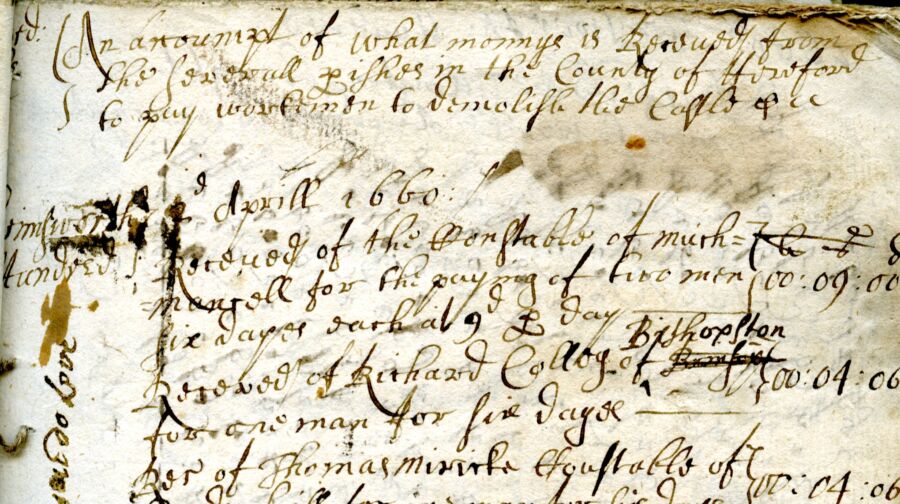 An accoumpt of what monnys is Receued from
the severall pishes in the County of Hereford
to pay workemen to demolish the Castle &c
d Aprill 1660:
Grimsworth
Hundred
Receued of the Constable of much=
mansell for the paying of two men 00:09:00
six dayes each at 9d p day
Bishopston
Receued of Richard Colley of 00:04:06
for one man for six dayes
Rec of Thomas Miricke Constable of 00:04:06
for one man for six dayes